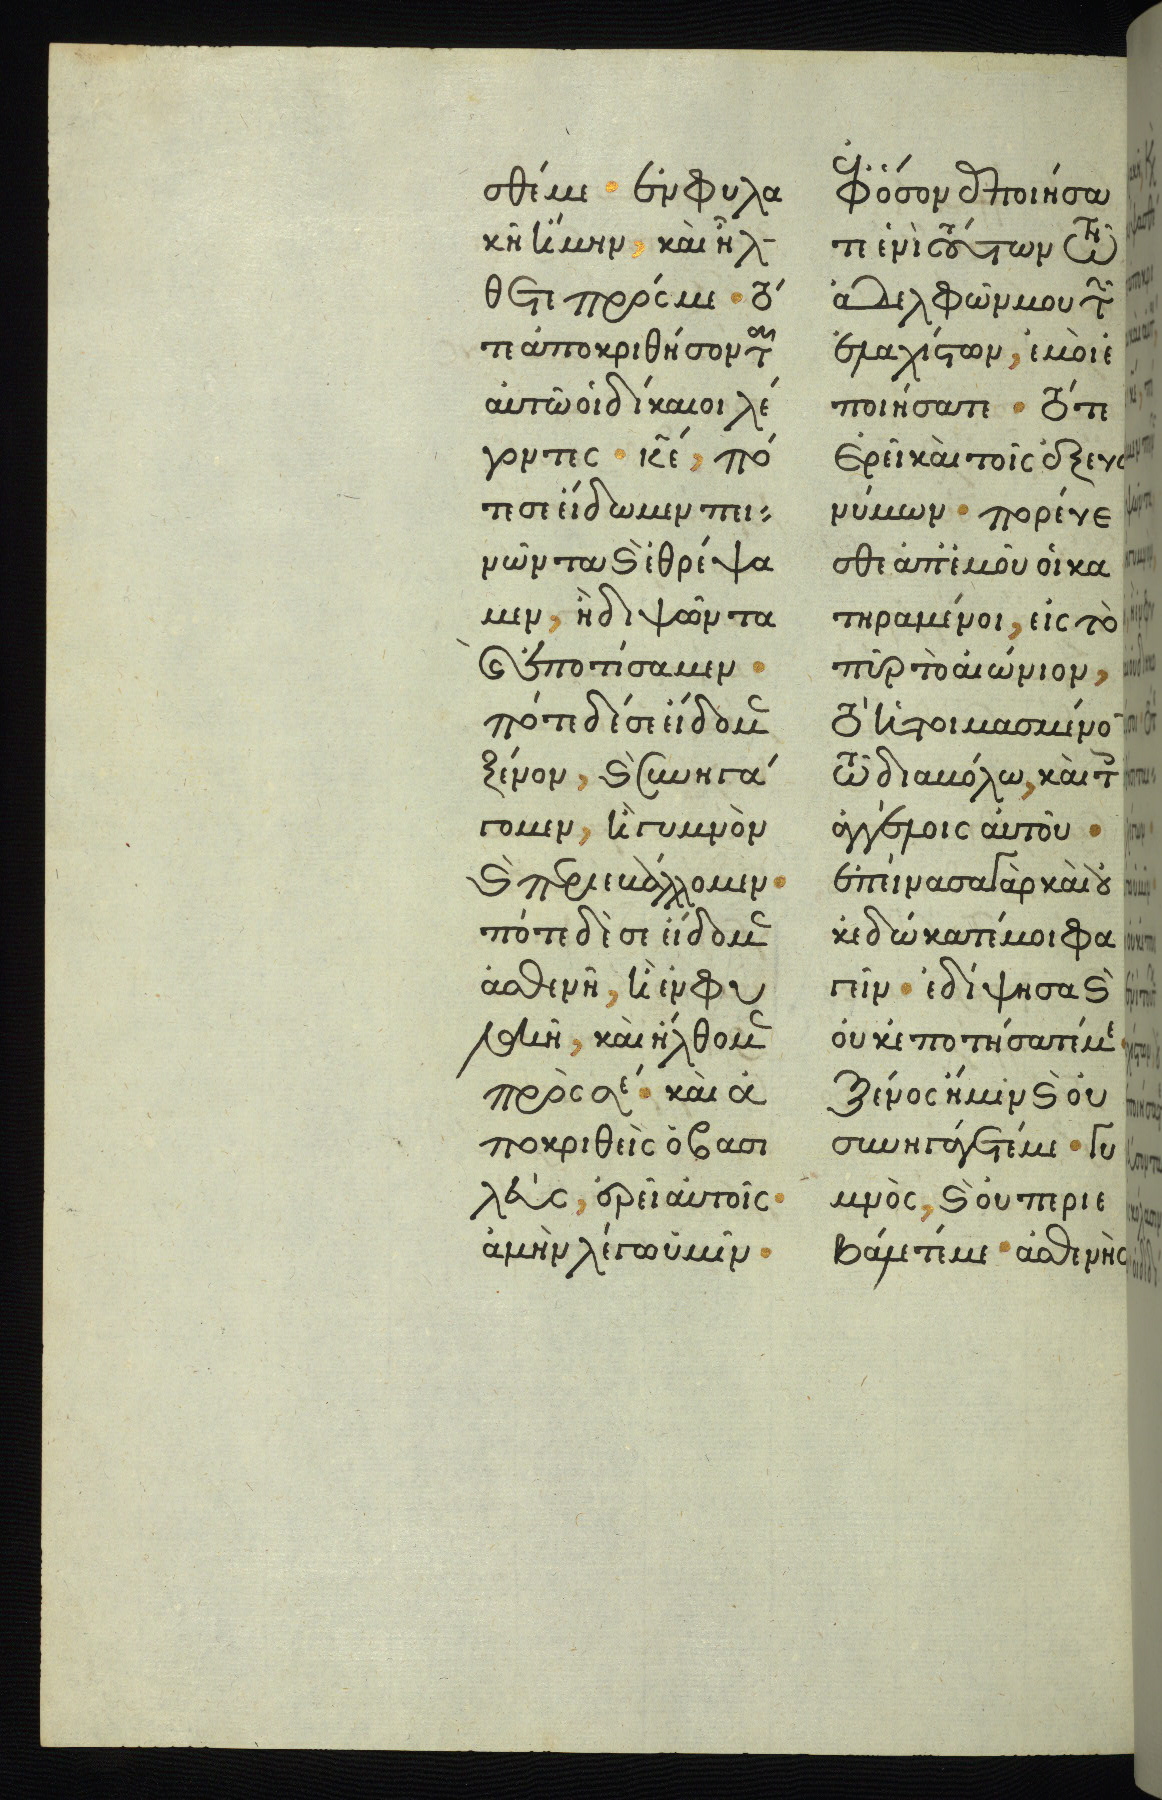 σθέ με · ἐν φυλα
κῆ ἤμην, καὶ ἤλ-
θετε πρός με · τό
τε ἀποκριθήσονται
αὐτῶ οἱ δίκαιοι λέ
γοντες · κε̄, πό
τε σὲ εἴδωμεν πει=
νῶντα καὶ ἐθρέψα
μεν, ἢ διψῶντα
καὶ ἐποτίσαμεν ·
πότε δέ σε εἴδομεν
ξένον, καὶ συνηγά
γομεν, ἢ γυμνὸν
καὶ περιεβάλλομεν ·
πότε δὲ σὲ εἴδομεν
ἀσθενῆ, ἢ ἐν φυ
λακῆ, καὶ ἤλθομεν
πρὸς σέ · καὶ ἀ
ποκριθεὶς ὁ βασι
λεὺς, ἐρεῖ αὐτοῖς ·
ἀμὴν λέγω ὑμῖν ·
ἐφ' ὅσον ἐποιήσα
τε ἑνὶ τούτων τῶν
ἀδελφῶν μου τῶν
ἐλαχίστων, ἐμοὶ ἐ
ποιήσατε · τότε
ἐρεῖ καὶ τοῖς ἐξ εὐω
νύμων · πορεύε
σθε ἀπ' ἐμοῦ οἱ κα
τηραμένοι, εἰς τὸ
πῦρ τὸ αἰώνιον,
τὸ ἡτοιμασμένο
τῶ διαβόλω, καὶ τοῖς
ἀγγέλοις αὐτοῦ ·
ἐπείνασα γὰρ καὶ οὐ
κ ἐδώκατέ μοι φα
γεῖν · ἐδίψησα καὶ
οὐκ ἐποτήσατέ με ·
Ξένος ἤμην καὶ οὐ
συνηγάγετέ με · γυ
μνὸς, καὶ οὐ περιε
βάλετέ με · ἀσθενὴς